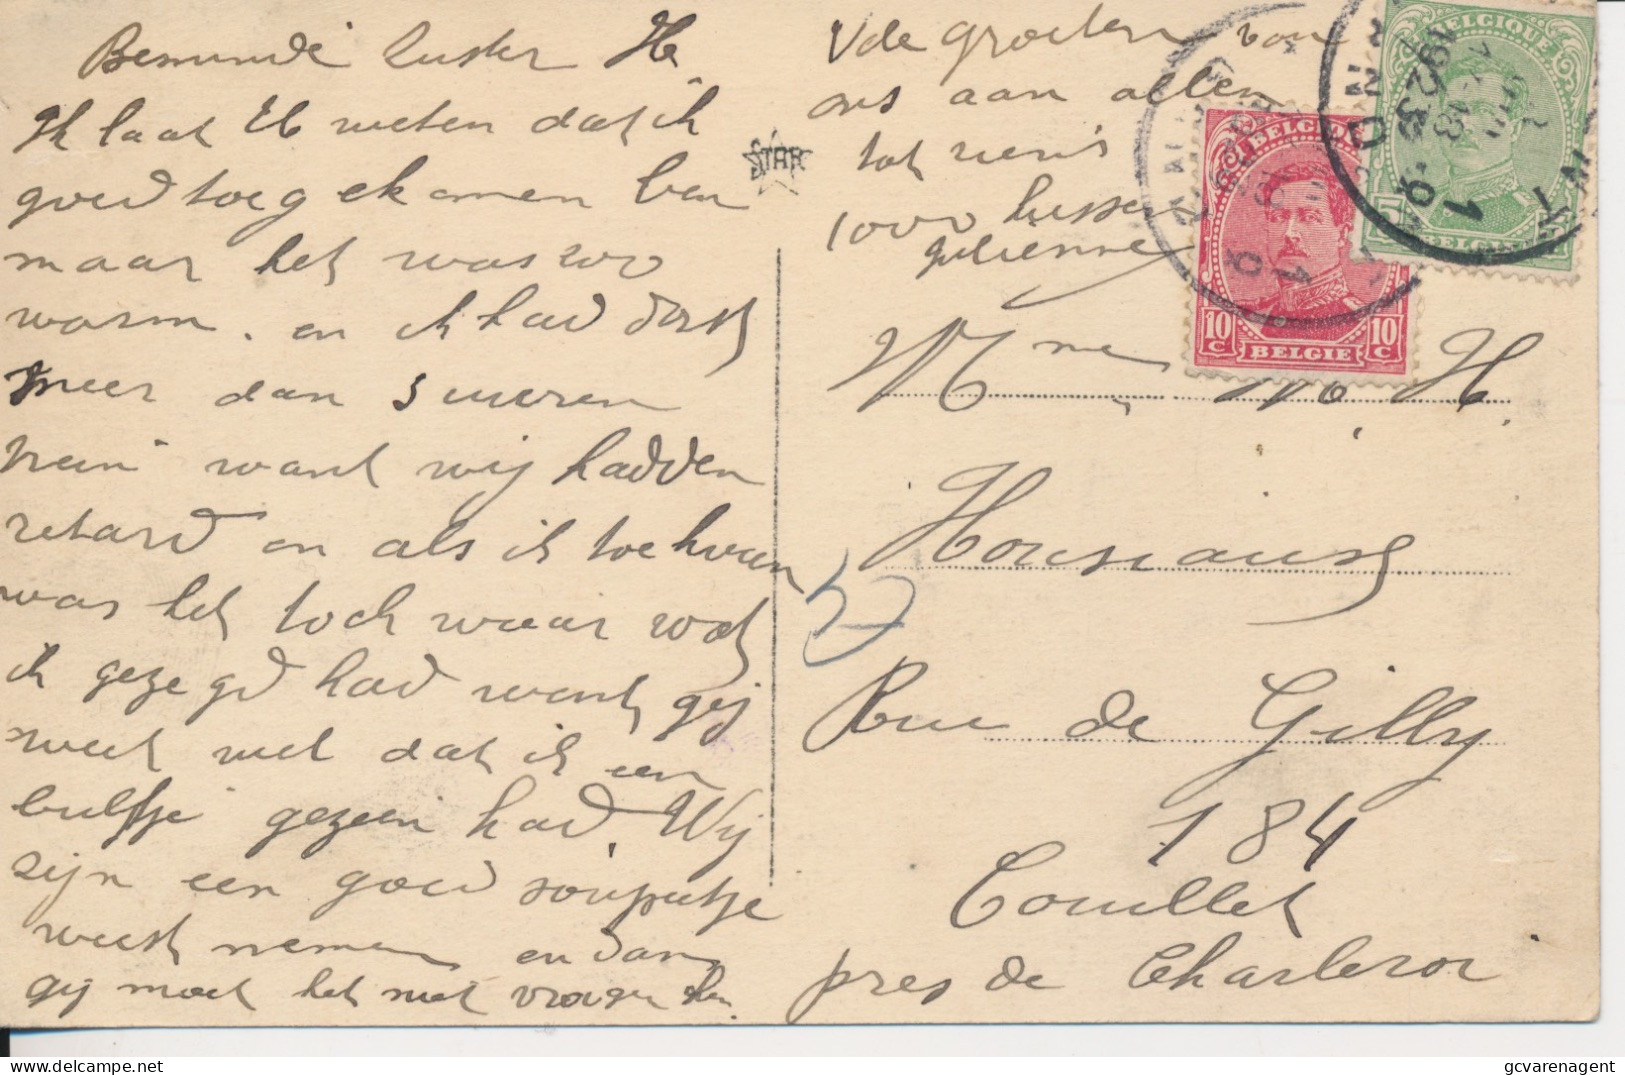 Beminde zuster He
Ik laat U weten dat ik
goed toeg ekomen ben
maar het was zoo
warm. en ik had dorst
meer dan 3 uuren
want wij hadden
retard en als ik toe kwam
was het toch waar wat
ik gezegd had want gij
weet wel dat ik een
gezeen had, Wij
zijn een goed soupeetje
weest nemen en dan
gij moet het niet vragen
Vele groeten van
ons aan allen
tot ziens
1000 kussen
julienne
STAR
BELGIQUE
10 C 10 C
BELGIE
BELGIQUE
5 5
BELGIE
Mme H.
Housiaux
Rue de Gilly
184
Couillet
pres de Charleroi
gcvarenagent